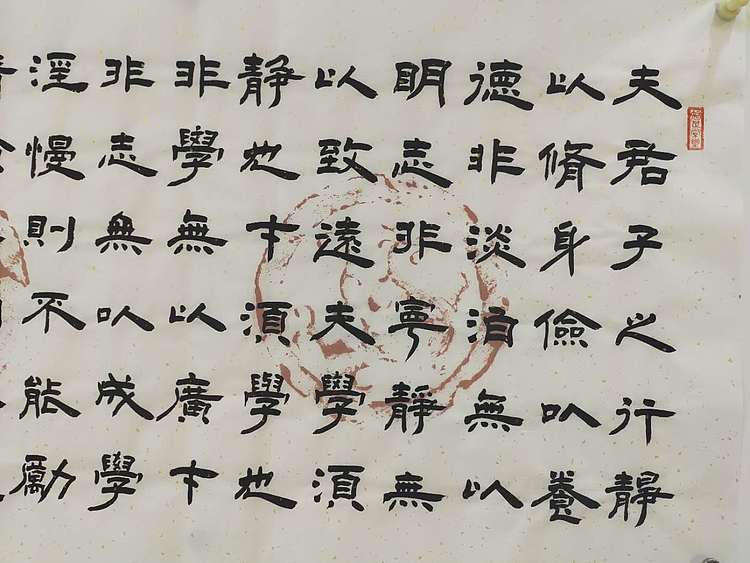 夫君子之行靜
以脩身儉以養
德非淡泊無以
明志非寧靜無
以致遠夫學須
靜也才須學也
非學無以廣才
非志無以成學
淫慢則不能勵